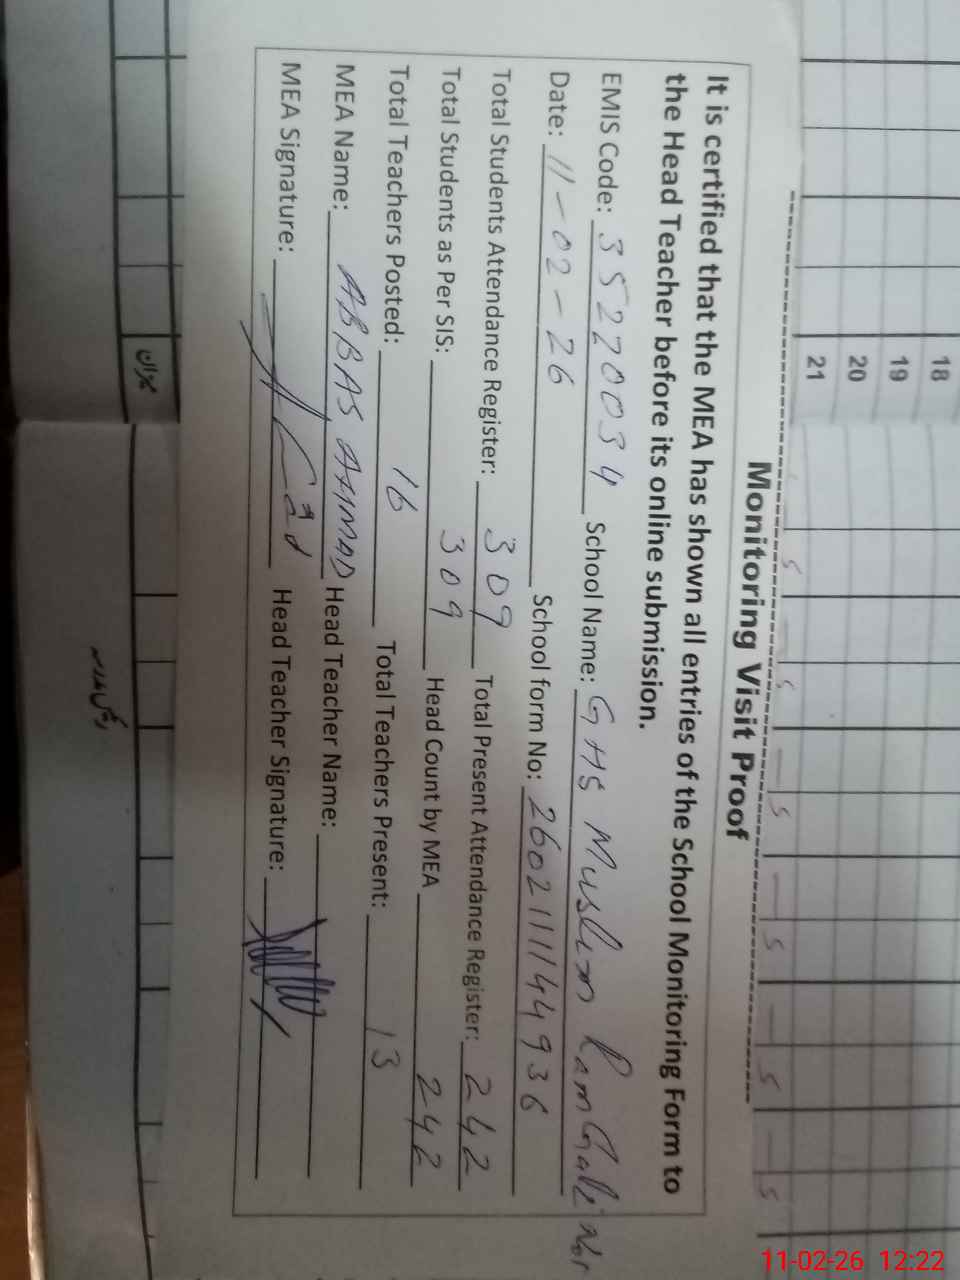 18
19
20
21
Monitoring Visit Proof
It is certified that the MEA has shown all entries of the School Monitoring Form to
the Head Teacher before its online submission.
EMIS Code: 35220034 School Name: GHS Muslim Ram Gali No
Date: 11-02-26 School form No: 2602111144936
Total Students Attendance Register: 309 Total Present Attendance Register: 242
Total Students as Per SIS: 309 Head Count by MEA 242
Total Teachers Posted: 16 Total Teachers Present: 13
MEA Name: ABBAS AHMAD Head Teacher Name:
MEA Signature: Head Teacher Signature:
میزان
11-02-26 12:22